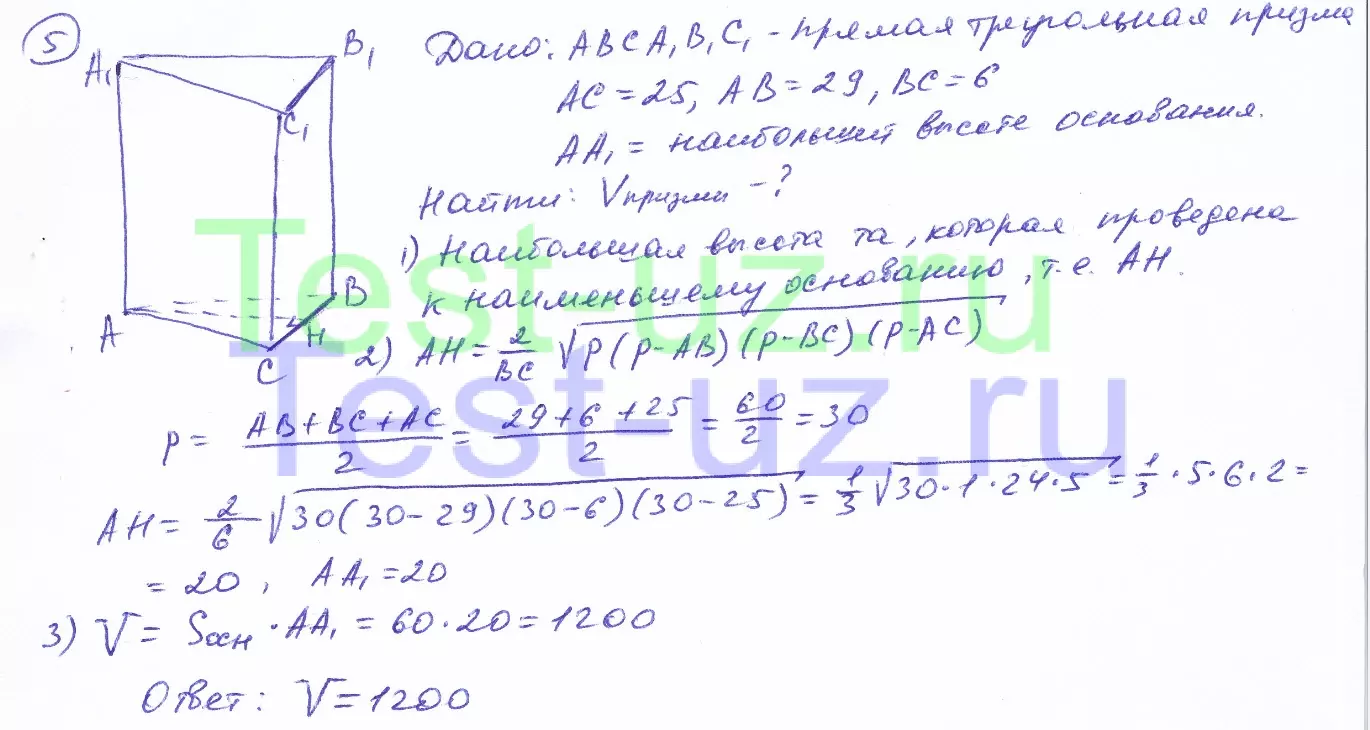 5
A₁ B₁ C₁ A B C H
Дано: ABCA₁B₁C₁ - прямая треугольная призма
AC = 25, AB = 29, BC = 6
AA₁ = наибольшей высоте основания.
Найти: Vпризмы - ?
1) Наибольшая высота та, которая проведена
к наименьшему основанию, т.е. AH.
2) AH = 2/BC √(p(p-AB)(p-BC)(p-AC))
p = (AB+BC+AC)/2 = (29+6+25)/2 = 60/2 = 30
AH = 2/6 √(30(30-29)(30-6)(30-25)) = 1/3 √(30·1·24·5) = 1/3 · 5·6·2 =
= 20, AA₁ = 20
3) V = Sосн · AA₁ = 60·20 = 1200
Ответ: V = 1200
Test-uz.ru
Test-uz.ru